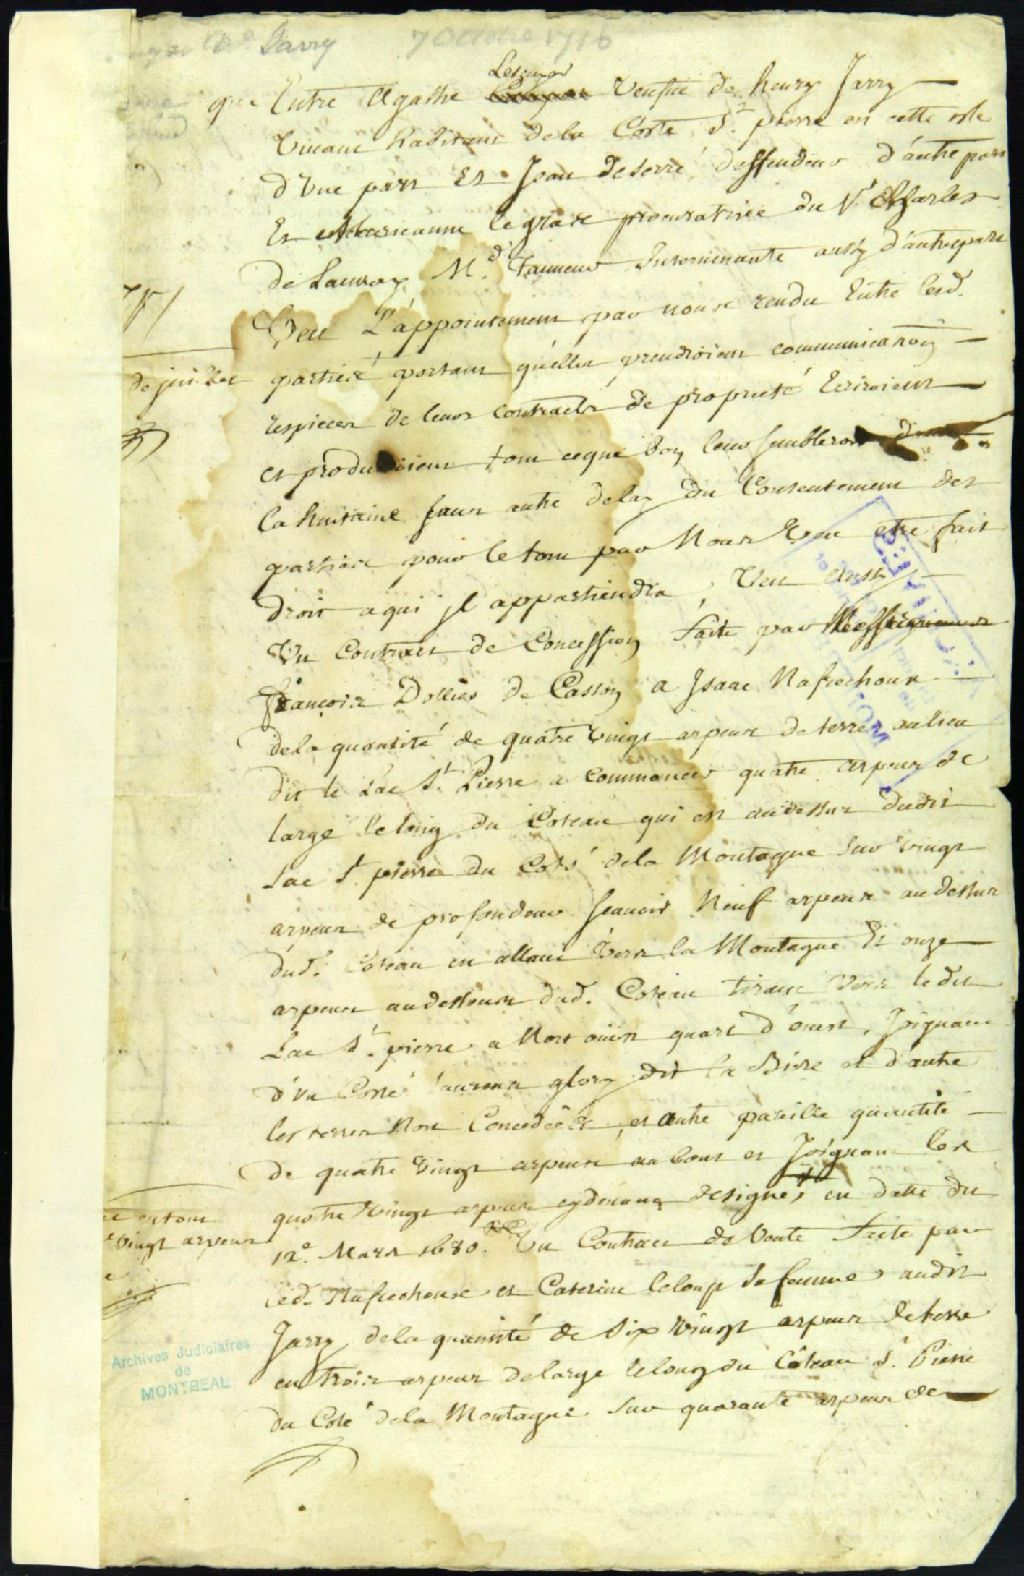 De Jarry 7 Octobre 1716
Lecuyer
que Entre Agathe Veufue de henry Jarry
viuant habitant de la Coste St. pierre en cette isle
d'Vne part Et Jean deserre deffendeur d'autre part
Et Marieanne legrade procuratrice du Sr. Charles
de Launay Md. Tanneur Interuenante aussy d'autrepart
Veu L'appointement par nous rendu Entre lesd.
parties portant qu'elles prendroient communication
respiecer de leurs contracts de proprieté Ecriroient
et produiroient tout ceque bon leur sembleroit dans
la huitaine sans autre delay du Consentement des
parties pour le tout par Nous Veu etre fait
droit aqui Jl appartiendra, Veu aussy
Vn Contract de Concession faite par Messire
françois Dollier de Casson a Jsaac Nafrechoux
dela quantité de quatre vingt arpens de terre au lieu
dit le Lac St. Pierre a commencer quatre arpens de
large le long du Coteau qui est audessus dudit
Lac St. pierre du Costé dela Montagne sur vingt
arpens de profondeur scauoir Neuf arpens audessus
dud. Coteau en allant vers la Montagne Et onze
arpens audessous dud. Coteau tirant vers ledit
Lac St. pierre a Nort ouest quart d'ouest, Joignant
d'vn Costé Laurent glory dit la Biere et d'autre
les terres Non Concedées, et autre pareille quantité
de quatre vingt arpens au bout et Joignant les
quatre vingt arpens cydeuant designés, en datte du
12e. Mars 1680. Vn Contract de Vente faite par
led. Nafrechoux et Caterine leloup sa femme audit
Jarry dela quantité de Six Vingt arpens deterre
en trois arpens delarge le long du Côteau St. Pierre
du Coté dela Montagne sur quarante arpens de
de juillet
en tout
vingt arpens
Archives Judiciaires
de
MONTREAL